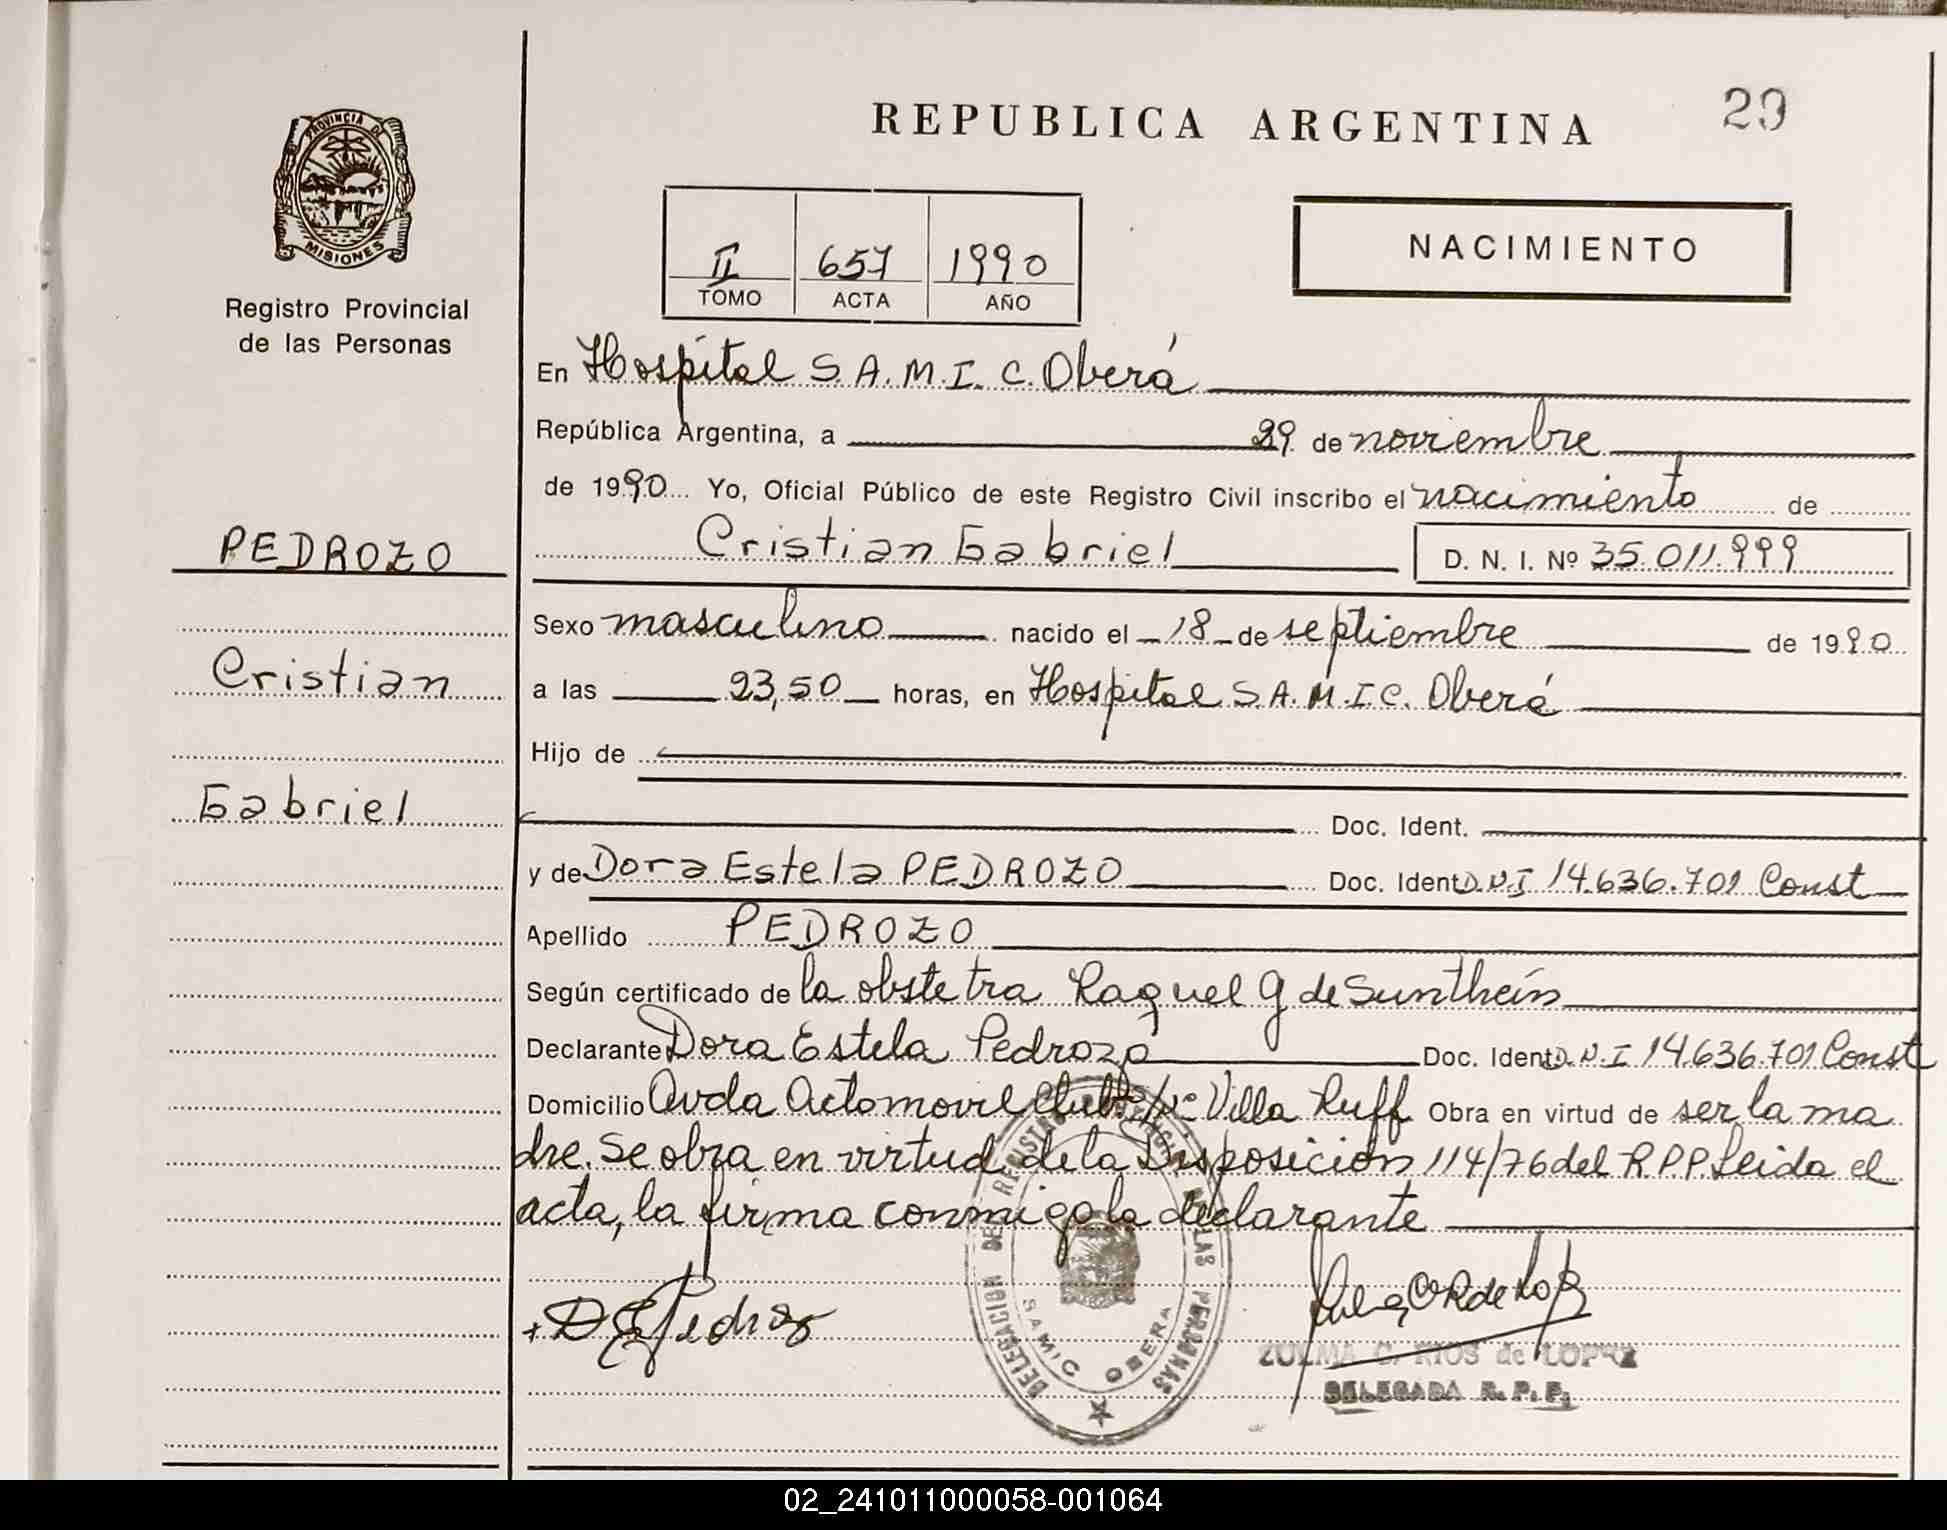 REPUBLICA ARGENTINA
29
PROVINCIA DE
MISIONES
Registro Provincial
de las Personas
II 657 1990
TOMO ACTA AÑO
NACIMIENTO
En Hospital S.A.M.I.C. Oberá
República Argentina, a 29 de noviembre
de 1990 Yo, Oficial Público de este Registro Civil inscribo el nacimiento de
Cristian Gabriel D. N. I. Nº 35.011.999
PEDROZO
Cristian
Gabriel
Sexo masculino nacido el 18 de septiembre de 1990
a las 23,50 horas, en Hospital S.A.M.I.C. Oberá
Hijo de
Doc. Ident.
y de Dora Estela PEDROZO Doc. Ident D.N.I 14.636.701 Const
Apellido PEDROZO
Según certificado de la obstetra Raquel G de Sunthein
Declarante Dora Estela Pedrozo Doc. Ident D.N.I 14.636.701 Const
Domicilio Avda Actomovil Club s/nº Villa Ruff Obra en virtud de ser la ma
dre. Se obra en virtud de la Disposición 114/76 del R.P.P. Leida el
acta, la firma conmigo la declarante
DELEGACION DEL REGISTRO PROVINCIAL DE LAS PERSONAS
SAMIC OBERA
ZULMA C. RIOS de LOPEZ
DELEGADA R. P. P.
02_241011000058-001064